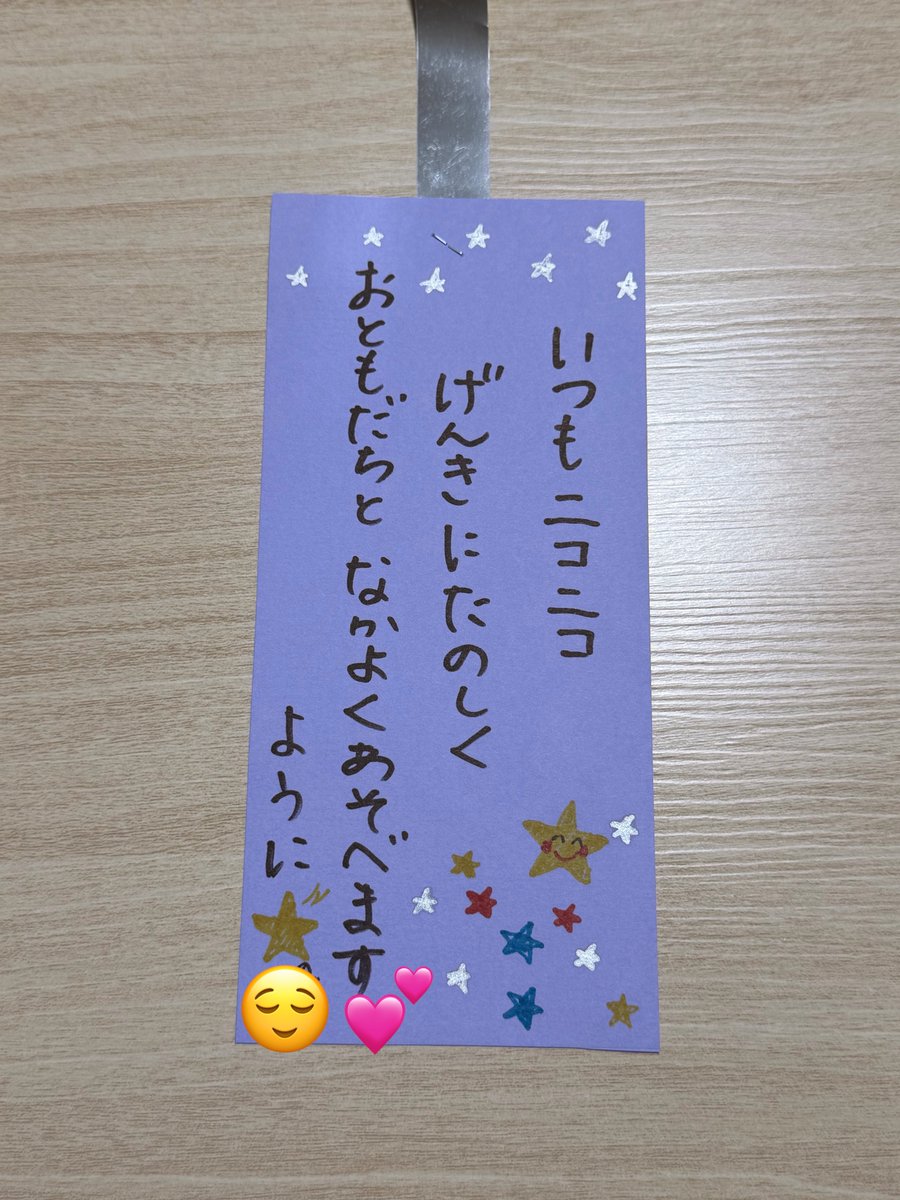 いつもニコニコ
げんきにたのしく
おともだちとなかよくあそべます
ように